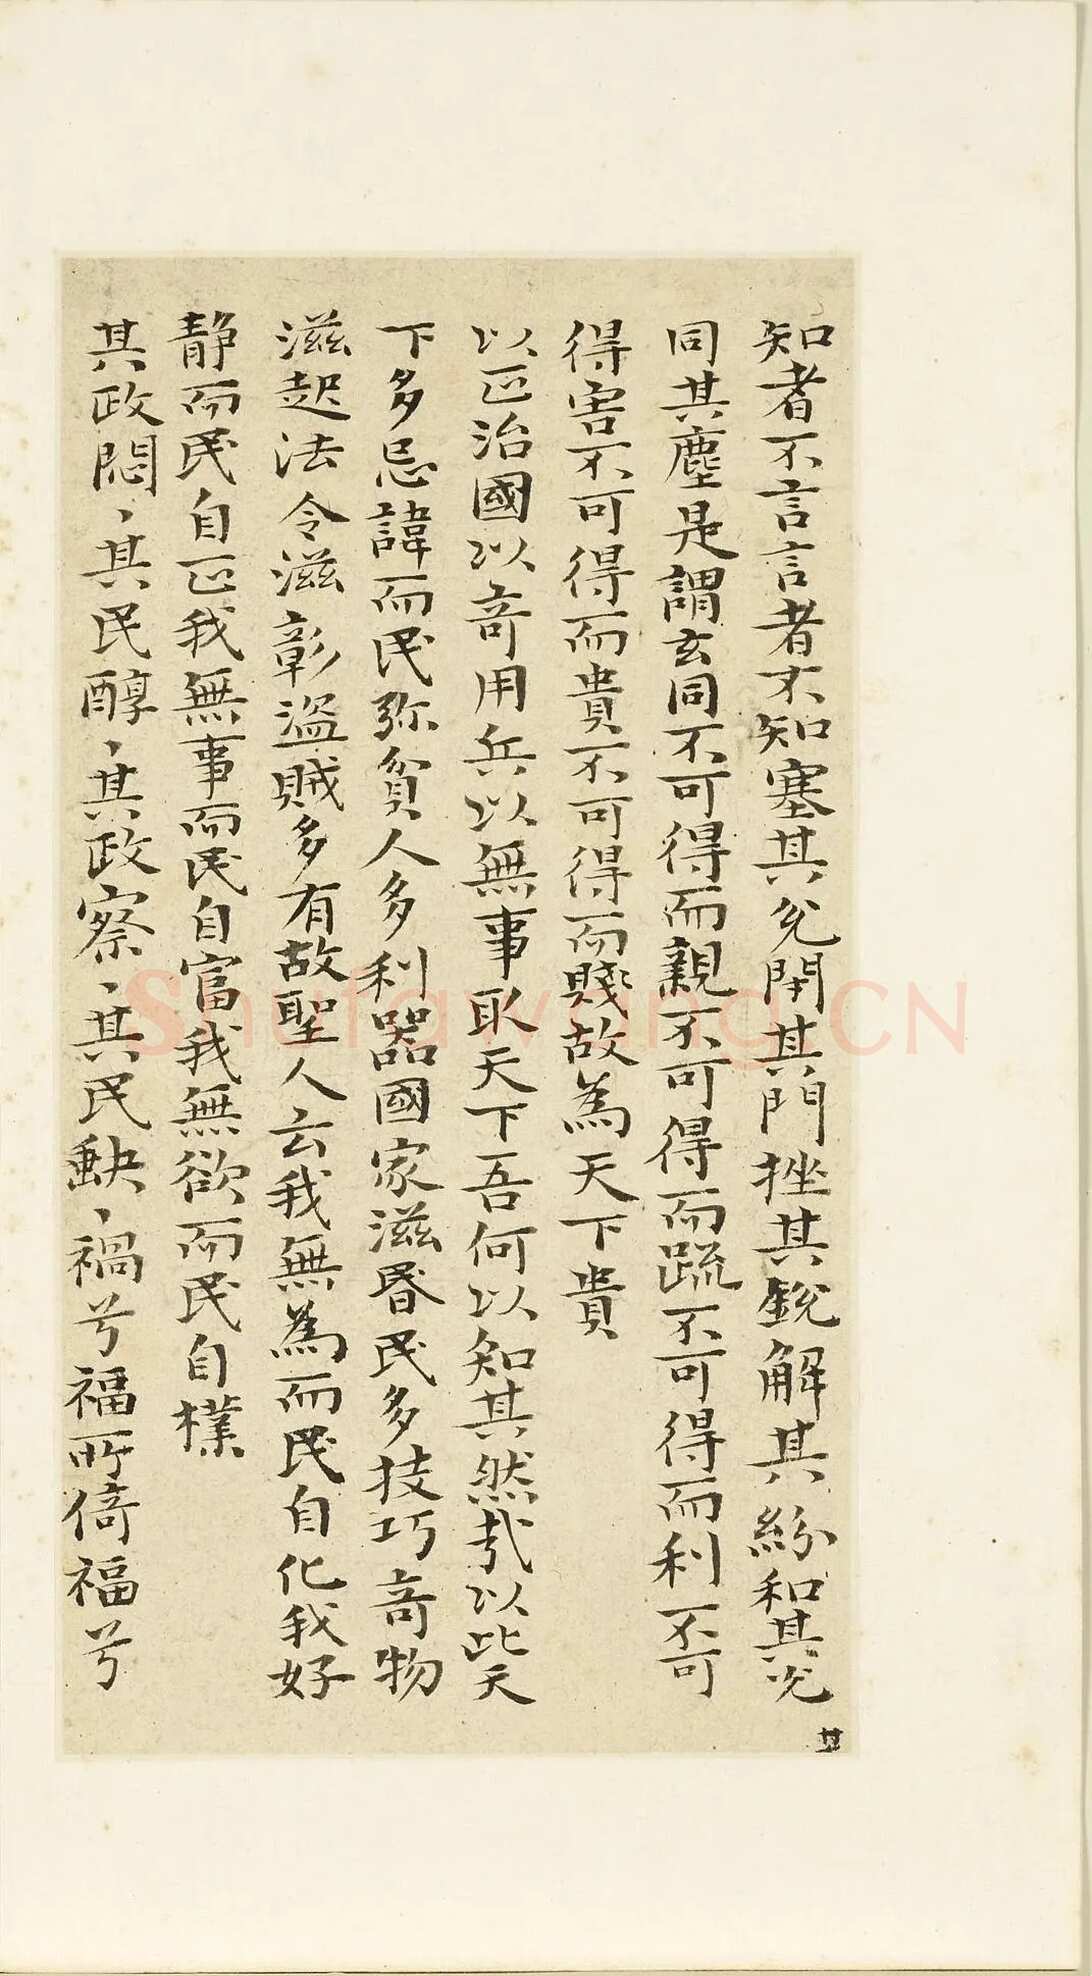 知者不言言者不知塞其兊閉其門挫其銳解其紛和其光
同其塵是謂玄同不可得而親不可得而疏不可得而利不可
得害不可得而貴不可得而賤故為天下貴
以正治國以奇用兵以無事取天下吾何以知其然哉以此天
下多忌諱而民弥貧人多利器國家滋昬民多技巧奇物
滋起法令滋彰盜賊多有故聖人云我無為而民自化我好
靜而民自正我無事而民自富我無欲而民自樸
其政悶、其民醇、其政察、其民缺、禍兮福所倚福兮
Shufawang.CN